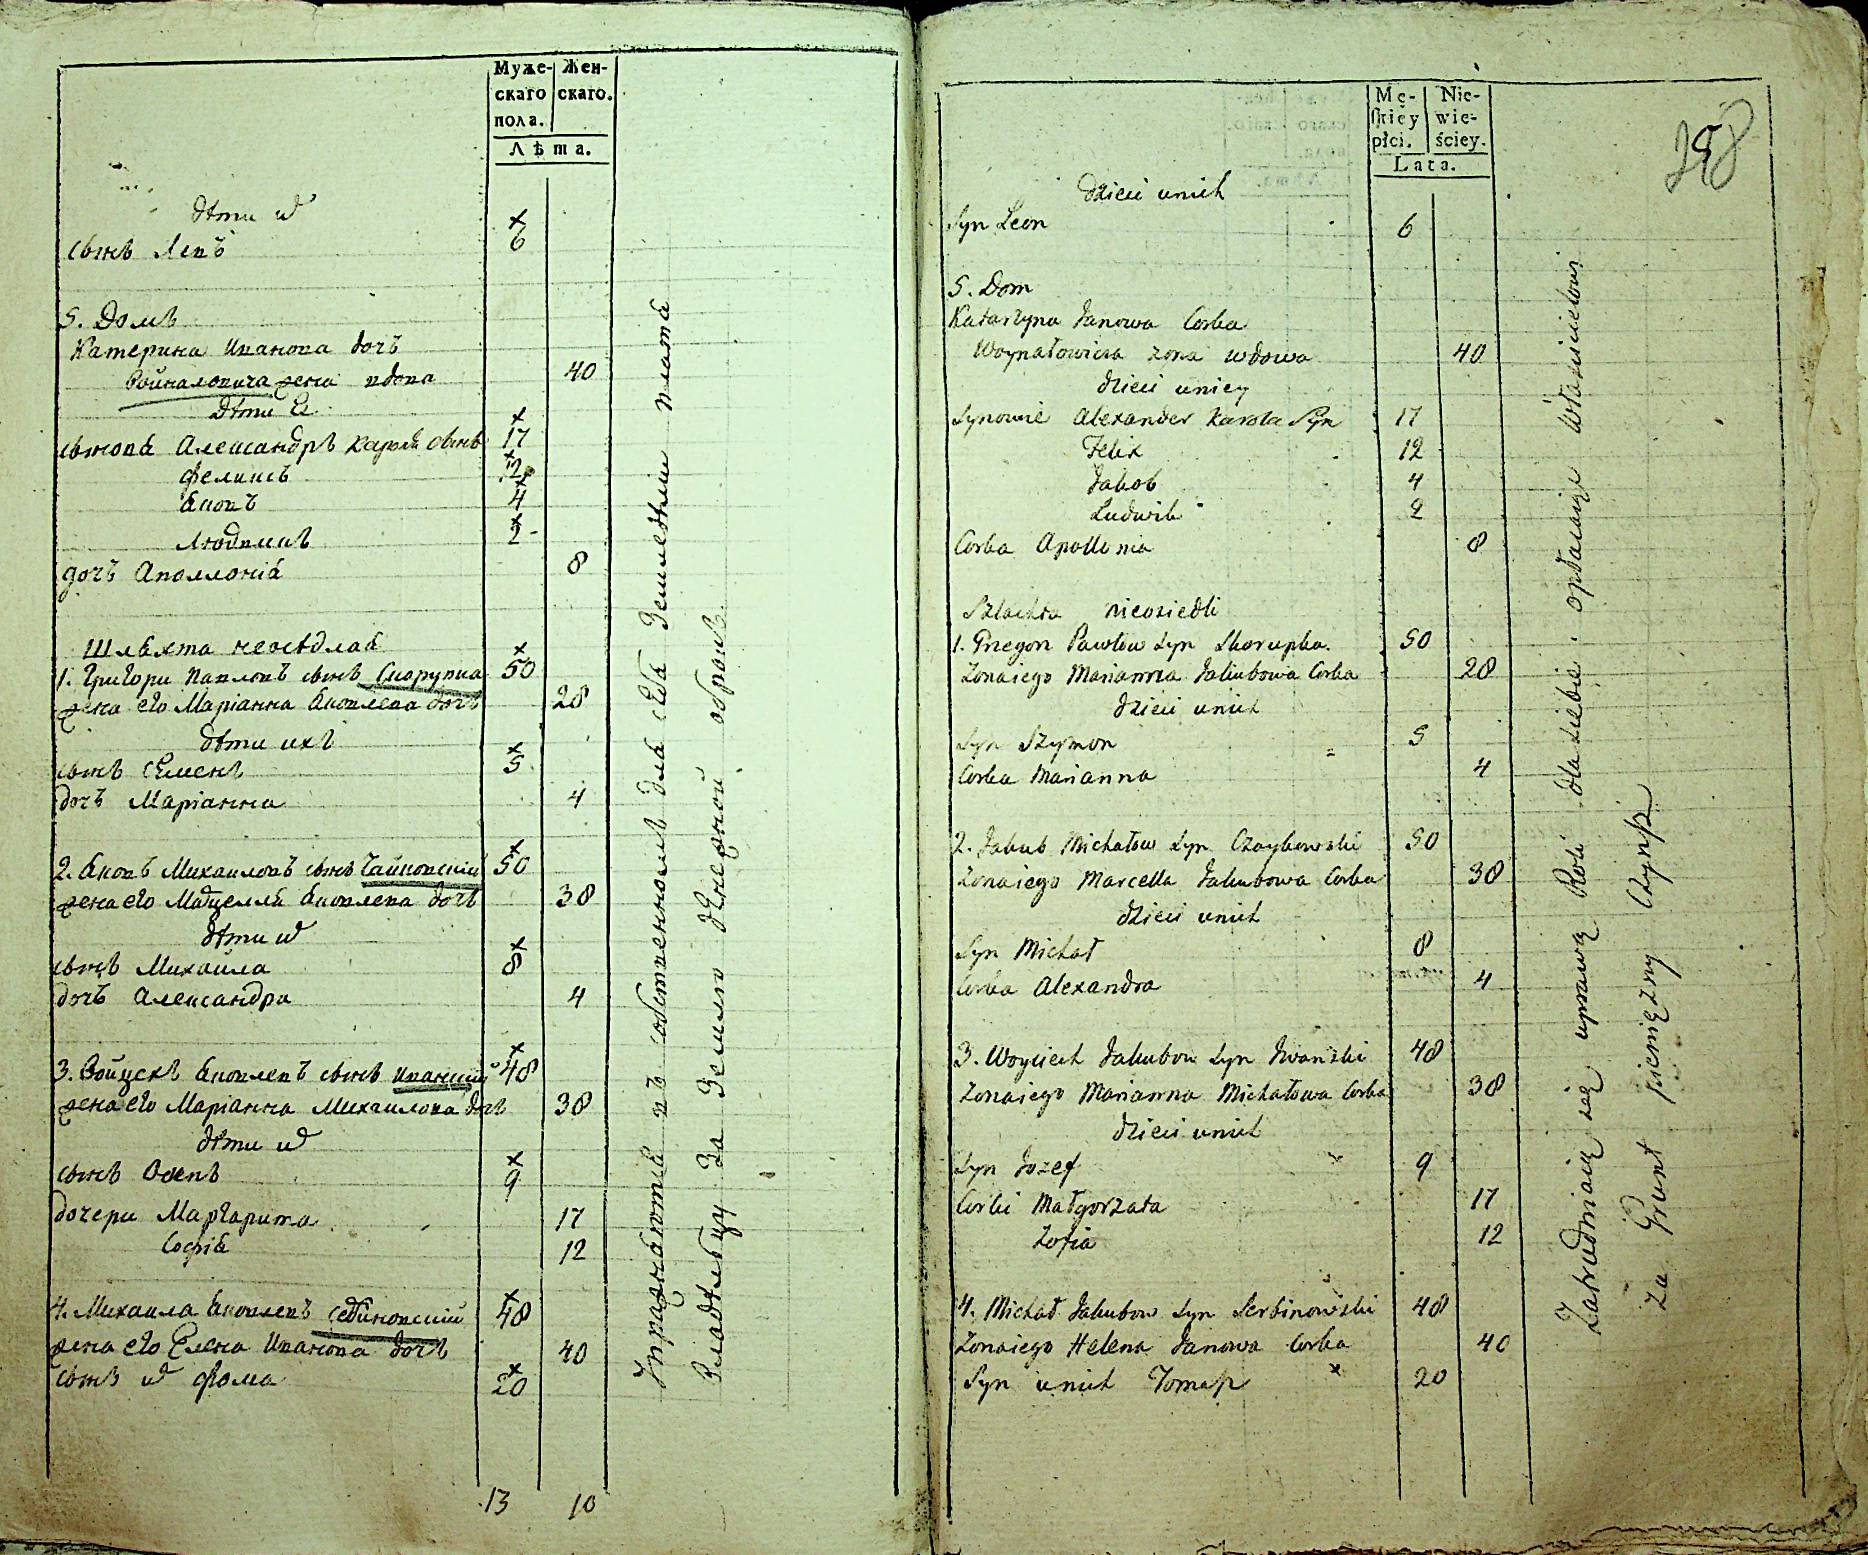 Муже-
скаго
пола.
Жен-
скаго.
Лѣта.
дѣти их
сынъ Левъ 6
5. Домъ
Катерина Иванова дочъ
Войналовича жена вдова 40
дѣти Ея
сыновья Александръ Кароля сынъ 17
Феликсъ 12
Яковъ 4
Людвикъ 2
дочъ Аполлонія 8
Шляхта неосѣдлая
1. Григори Павловъ сынъ Скорупка 50
жена его Маріанна Яковлева дочъ 28
дѣти ихъ
сынъ Семенъ 5
дочъ Маріанна 4
2. Яковъ Михаиловъ сынъ Чайковскій 50
жена его Марцелля Яковлева дочъ 38
дѣти их
сынъ Михайла 8
дочъ Александра 4
3. Войцехъ Яковлевъ сынъ Иванскій 48
жена его Маріанна Михаилова дочъ 38
дѣти их
сынъ Осепъ 9
дочери Маргарита 17
Софія 12
4. Михаила Яковлевъ Сербиновскій 48
жена его Елена Иванова дочъ 40
сынъ их Фома 20
13 10
Упражняются въ собственномъ для себя Земледѣлии платя
Владѣльцу За Землю денежной оброкъ
Mę-
skiey
płci.
Nie-
wie-
ściey.
Lata.
258
dzieci unich
Syn Leon 6
5. Dom
Katarzyna Janowa Corka
Woynałowicza zona wdowa 40
dzieci uniey
Synowie Alexander Karola Syn 17
Felix 12
Jakob 4
Ludwik 2
Corka Apollonia 8
Szlachta nieosiedli
1. Grzegorz Pawłow Syn Skorupka. 50
Zonaiego Marianna Jakubowa Corka 28
dzieci unich
Syn Szymon 5
Corka Marianna 4
2. Jakub Michałow Syn Czaykowski 50
Zonaiego Marcella Jakubowa Corka 38
dzieci unich
Syn Michał 8
Corka Alexandra 4
3. Woyciech Jakubow Syn Iwanski 48
Zonaiego Marianna Michałowa Corka 38
dzieci unich
Syn Jozef 9
Corki Małgorzata 17
Zofia 12
4. Michał Jakubow Syn Serbinowski 48
Zonaiego Helena Janowa Corka 40
Syn unich Tomasz 20
Zatrudniaią się uprawą Roli dla siebie. opłacaiąc właścicielowi
Za Grunt pieniężny Czynsz